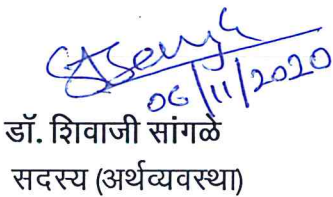 06/11/2020
डॉ. शिवाजी सांगळे
सदस्य (अर्थव्यवस्था)